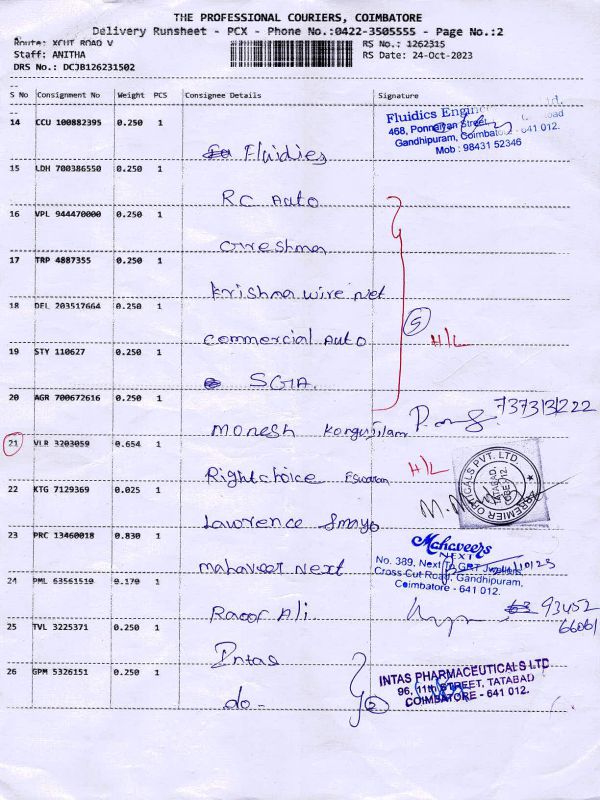 THE PROFESSIONAL COURIERS, COIMBATORE
Delivery Runsheet - PCX - Phone No.:0422-3505555 - Page No.:2
Route: XCUT ROAD V
RS No.: 1262315
Staff: ANITHA
RS Date: 24-Oct-2023
DRS No.: DCJB126231502
S No Consignment No Weight PCS Consignee Details Signature
14 CCU 100882395 0.250 1
Fluidies
Fluidics
468, Ponnaiyan Street,
Gandhipuram, Coimbatore - 641 012.
Mob : 98431 52346
15 LDH 700386550 0.250 1
RC Auto
16 VPL 944470000 0.250 1
Greeshma
17 TRP 4887355 0.250 1
Krishna wire net
18 DEL 203517664 0.250 1
Commercial Auto
5 H/L
19 STY 110627 0.250 1
SGIA.
20 AGR 700672616 0.250 1
Monesh
7373131222
21 VLR 3203059 0.654 1
Rightchoice Eswaran
H/L
PREMIER OPTICALS PVT. LTD
TATABAD
CBE-12
22 KTG 7129369 0.025 1
Lawrence
23 PRC 13460018 0.830 1
Mahaveer Next
Mahaveers
NEXT
No. 389, Next To GRT Jwellers,
Cross Cut Road, Gandhipuram,
Coimbatore - 641 012.
24 PML 63561519 0.170 1
Ali
93452
66061
25 TVL 3225371 0.250 1
Intas
26 GPM 5326151 0.250 1
do -
2
INTAS PHARMACEUTICALS LTD
96, 11th STREET, TATABAD
COIMBATORE - 641 012.